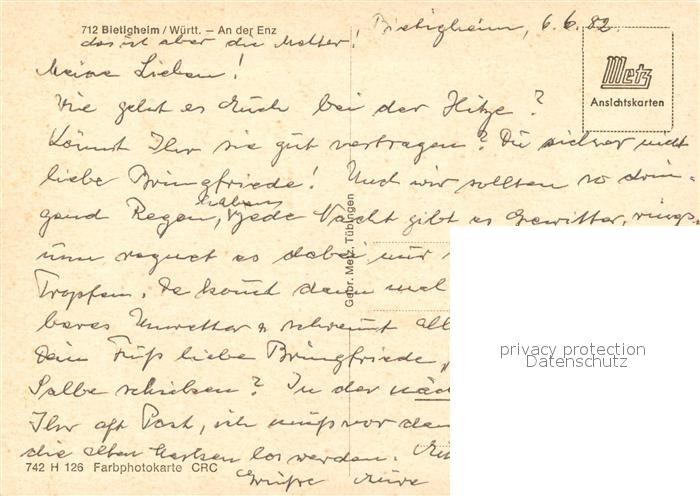 712 Bietigheim / Württ. – An der Enz
das ist aber die Metter!
Bietigheim, 6.6.82
Metz
Ansichtskarten
Meine Lieben!
Wie geht es Euch bei der Hitze?
Könnt Ihr sie gut vertragen? Du sicher nicht
liebe Bringfriede! Und wir sollten so drin-
gend Regen haben, jede Nacht gibt es Gewitter, rings-
um regnet es dabei nur
Tropfen. Da kommt dann mal
bares Unwetter u. schwemmt all
Dein Fuß liebe Bringfriede,
Salbe schicken? In der näch
Ihr oft Post, ich muß vor dem
die alten Karten los werden.
Grüße Eure
Gebr. Metz, Tübingen
742 H 126 Farbphotokarte CRC
privacy protection
Datenschutz